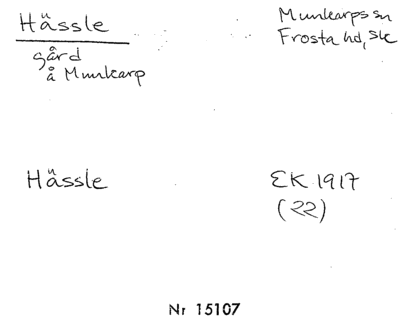 Hässle
Munkarps sn
Frosta hd, Sk
gård
å Munkarp
Hässle
EK 1917
(22)
Nr 15107